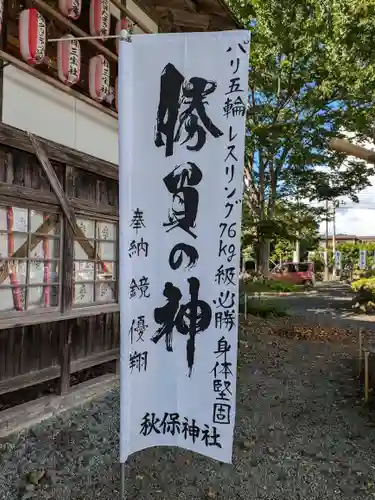 パリ五輪レスリング76kg級必勝身体堅固
勝負の神
奉納鏡優翔
秋保神社